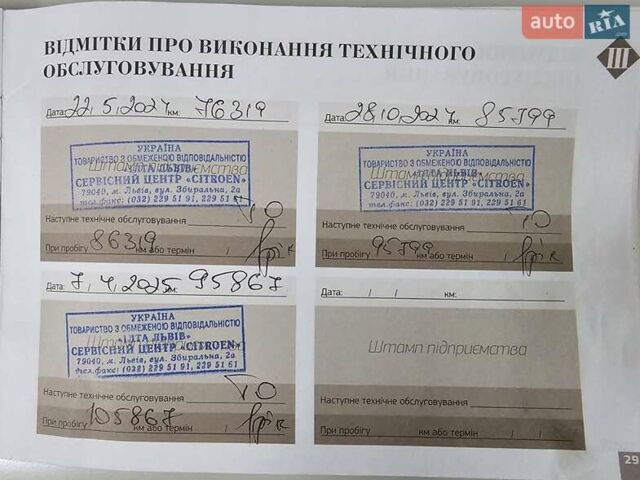 auto RIA.com
ВІДМІТКИ ПРО ВИКОНАННЯ ТЕХНІЧНОГО
ОБСЛУГОВУВАННЯ
III
Дата: 22.5.2024 км: 76319
Штамп підприємства
УКРАЇНА
ТОВАРИСТВО З ОБМЕЖЕНОЮ ВІДПОВІДАЛЬНІСТЮ
«ІЛТА ЛЬВІВ»
СЕРВІСНИЙ ЦЕНТР «CITROEN»
79040, м. Львів, вул. Збиральна, 2а
тел.факс: (032) 229 51 91, 229 51 61
Наступне технічне обслуговування ТО
При пробігу 86319 км або термін / 1рік
Дата: 28.10.2024 км: 85799
Штамп підприємства
УКРАЇНА
ТОВАРИСТВО З ОБМЕЖЕНОЮ ВІДПОВІДАЛЬНІСТЮ
«ІЛТА ЛЬВІВ»
СЕРВІСНИЙ ЦЕНТР «CITROEN»
79040, м. Львів, вул. Збиральна, 2а
тел.факс: (032) 229 51 91, 229 51 61
Наступне технічне обслуговування ТО
При пробігу 95799 км або термін / 1рік
Дата: 7.4.2025 км: 95867
Штамп підприємства
УКРАЇНА
ТОВАРИСТВО З ОБМЕЖЕНОЮ ВІДПОВІДАЛЬНІСТЮ
«ІЛТА ЛЬВІВ»
СЕРВІСНИЙ ЦЕНТР «CITROEN»
79040, м. Львів, вул. Збиральна, 2а
тел.факс: (032) 229 51 91, 229 51 61
Наступне технічне обслуговування ТО
При пробігу 105867 км або термін / 1рік
Дата: / / км:
Штамп підприємства
Наступне технічне обслуговування
При пробігу км або термін / /
29